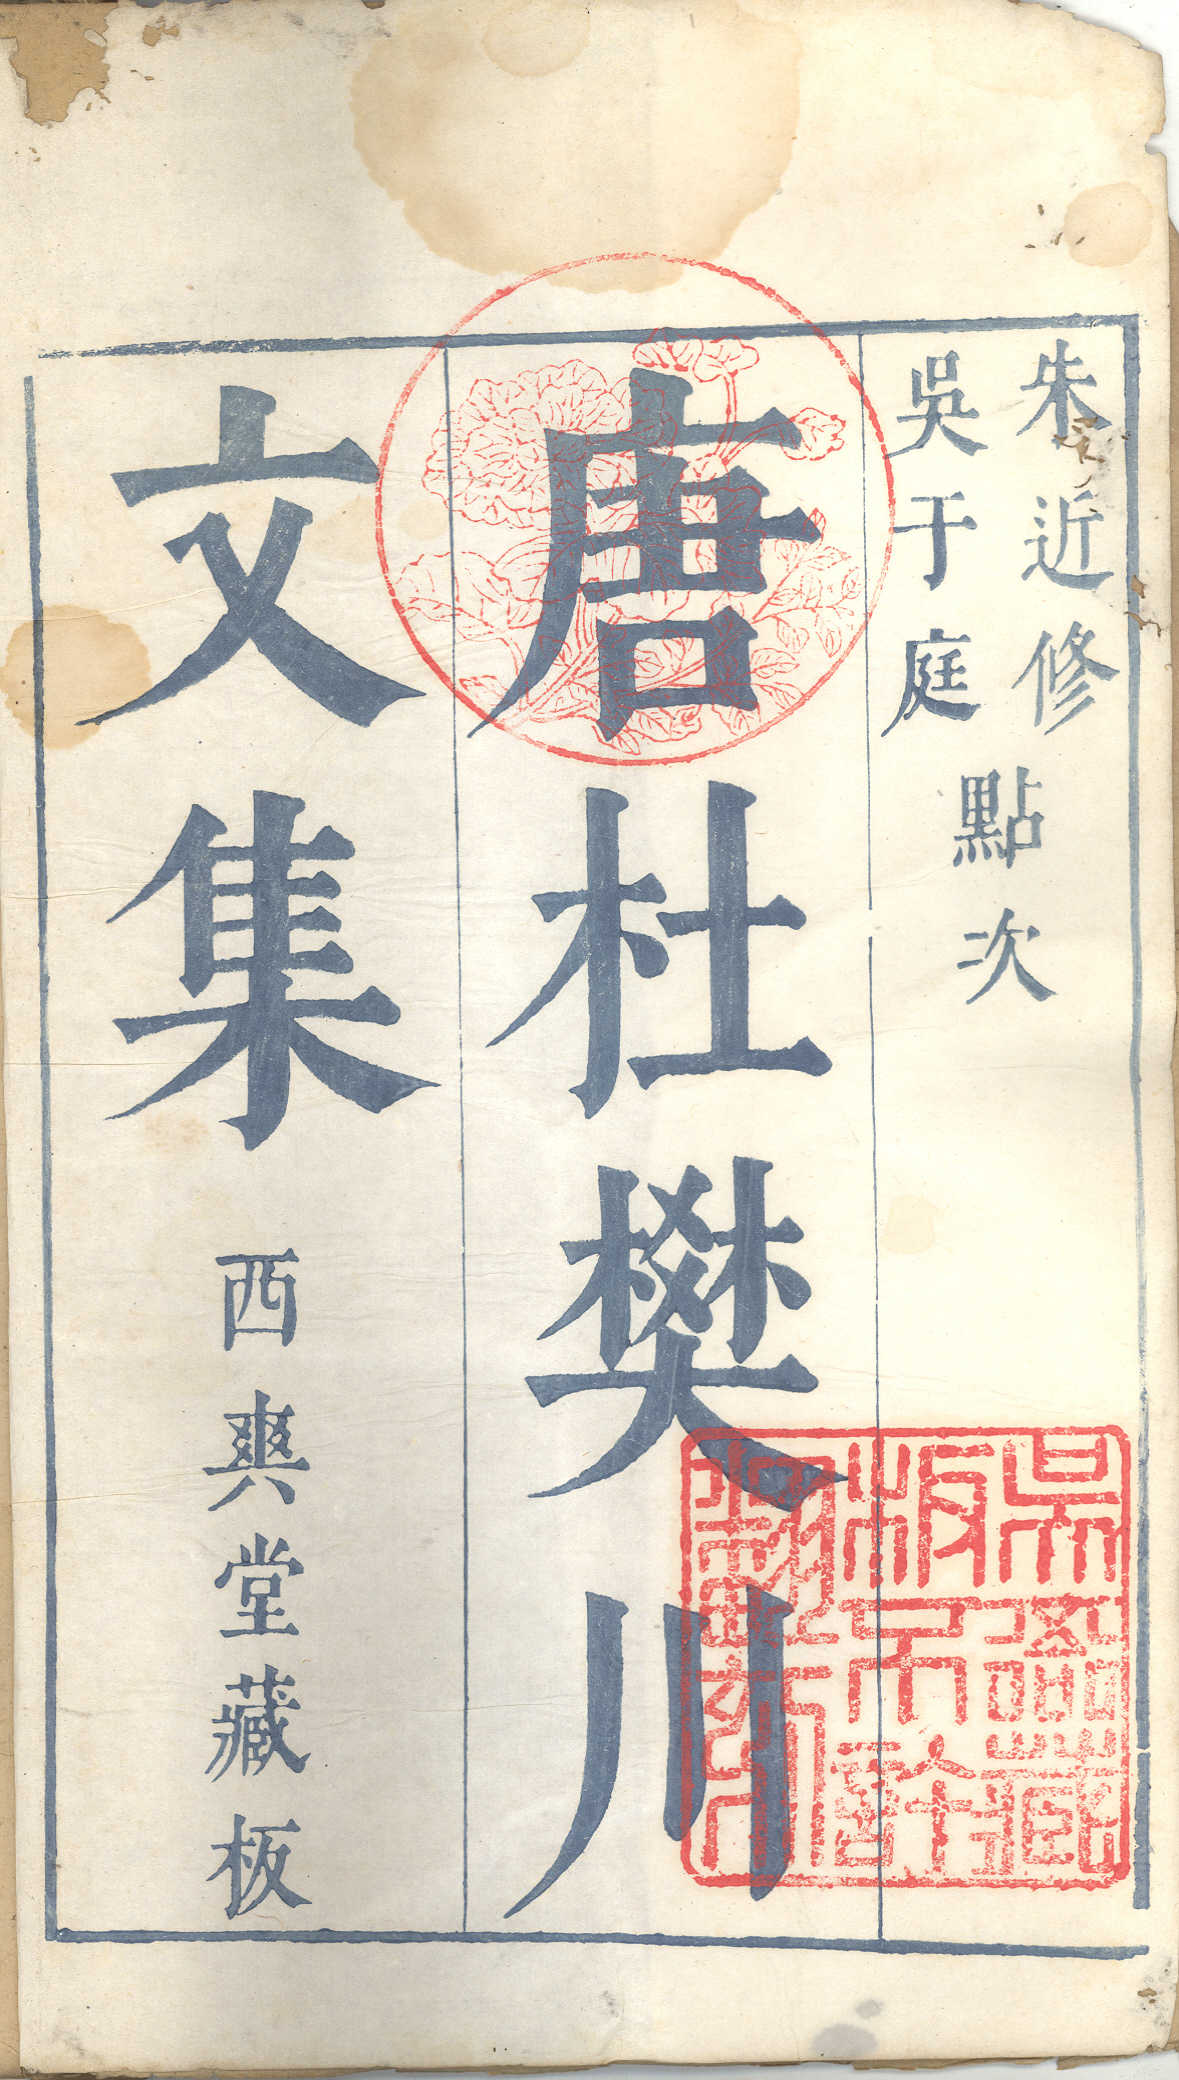 朱近修
吳于庭
點次
唐杜樊川
文集
西爽堂藏板